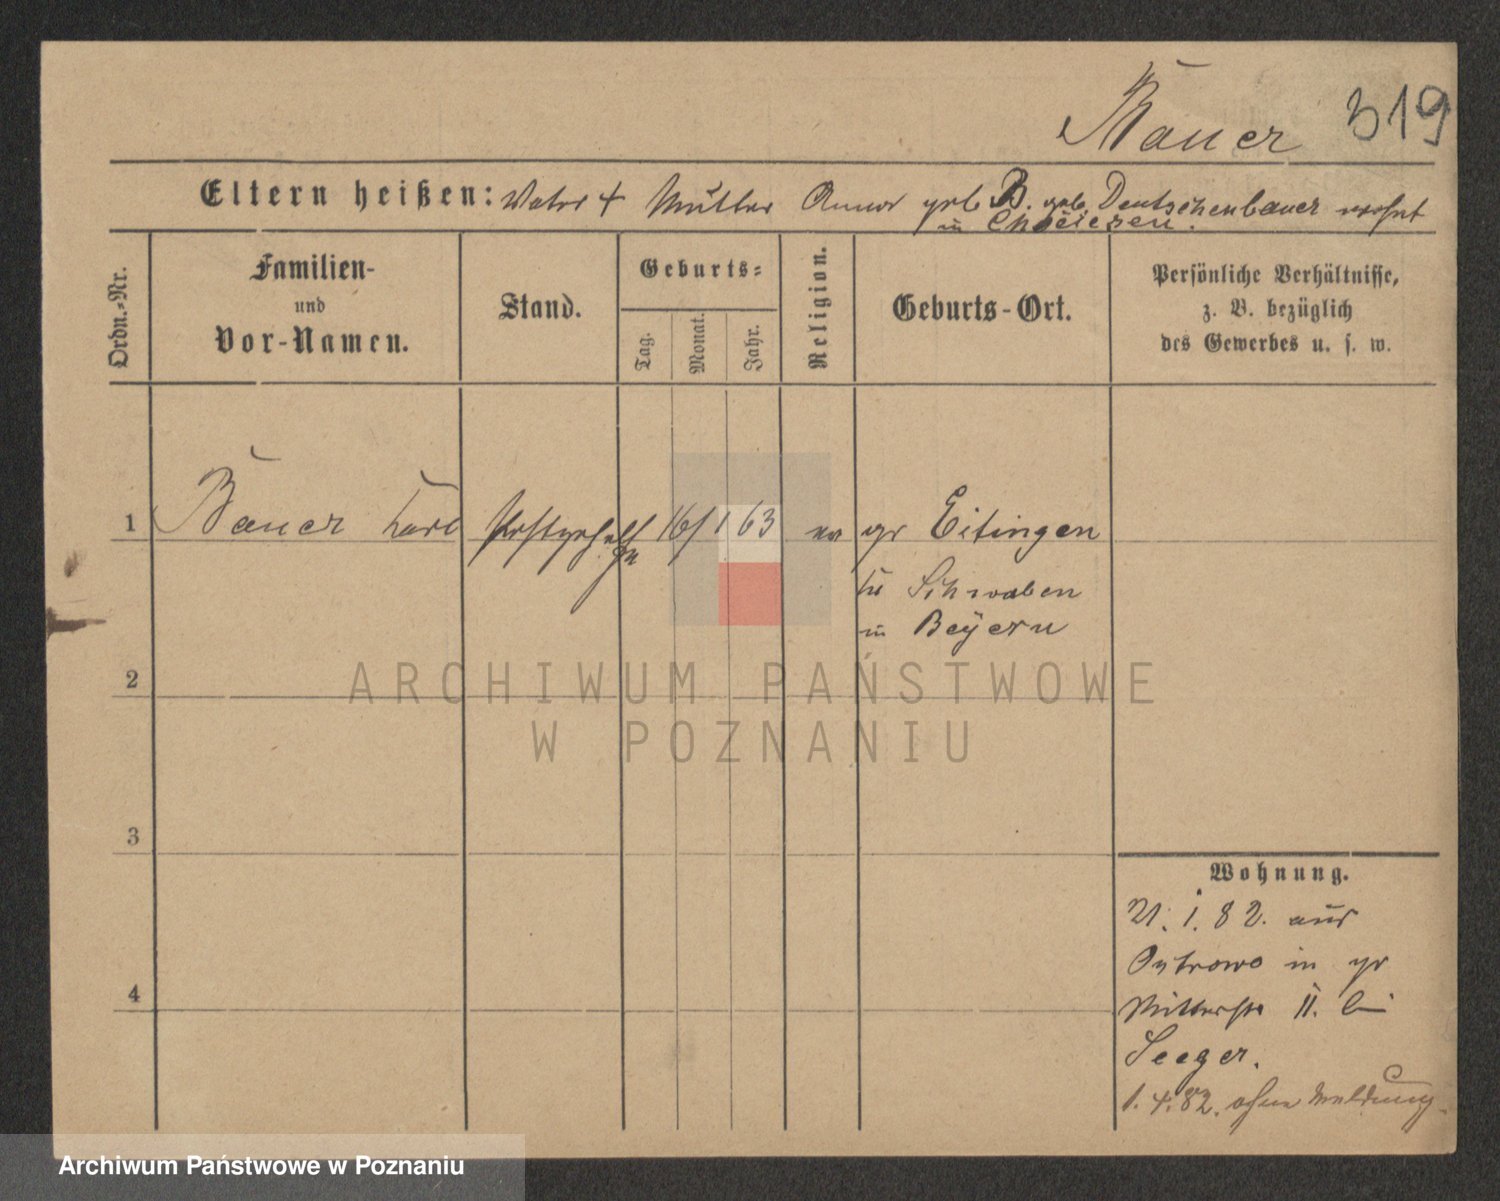 Bauer 319
Eltern heißen: Vater † Mutter Anna geb B. geb. Deutschenbauer wohnt
in
Ordn.-Nr.
Familien-
und
Vor-Namen.
Stand.
Geburts-
Tag.
Monat.
Jahr.
Religion.
Geburts-Ort.
Persönliche Verhältnisse,
z. B. bezüglich
des Gewerbes u. s. w.
1 Bauer Karl Postgehülfe 16/ 1 63 ev gr Eitingen
in Schwaben
in Beyern
2
ARCHIWUM PAŃSTWOWE
W POZNANIU
3
4
Wohnung.
21. 1. 82. aus
Ostrowo in gr
Ritterstr 11. bei
Seeger.
1. 4. 82. ohne Meldung.
Archiwum Państwowe w Poznaniu